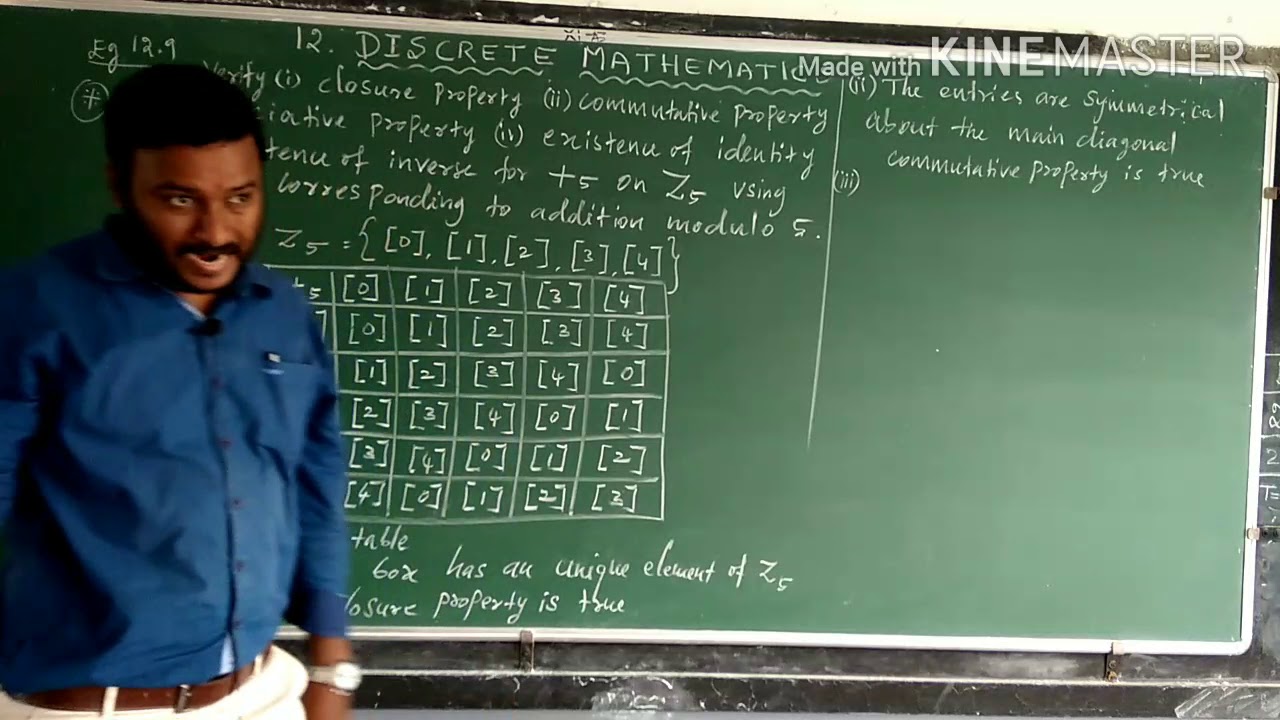 Made with KINEMASTER
Eg 12.9
12. DISCRETE MATHEMATIC
Verify (i) closure property (ii) commutative property
iative property (ii) existence of identity
tence of inverse for +5 on Z5 using
corresponding to addition modulo 5.
Z5 = { [0], [1], [2], [3], [4] }
+5 [0] [1] [2] [3] [4]
[0] [1] [2] [3] [4]
[1] [2] [3] [4] [0]
[2] [3] [4] [0] [1]
[3] [4] [0] [1] [2]
[4] [0] [1] [2] [3]
table
box has an unique element of Z5
losure property is true
(ii) The entries are symmetrical
about the main diagonal
commutative property is true
(iii)